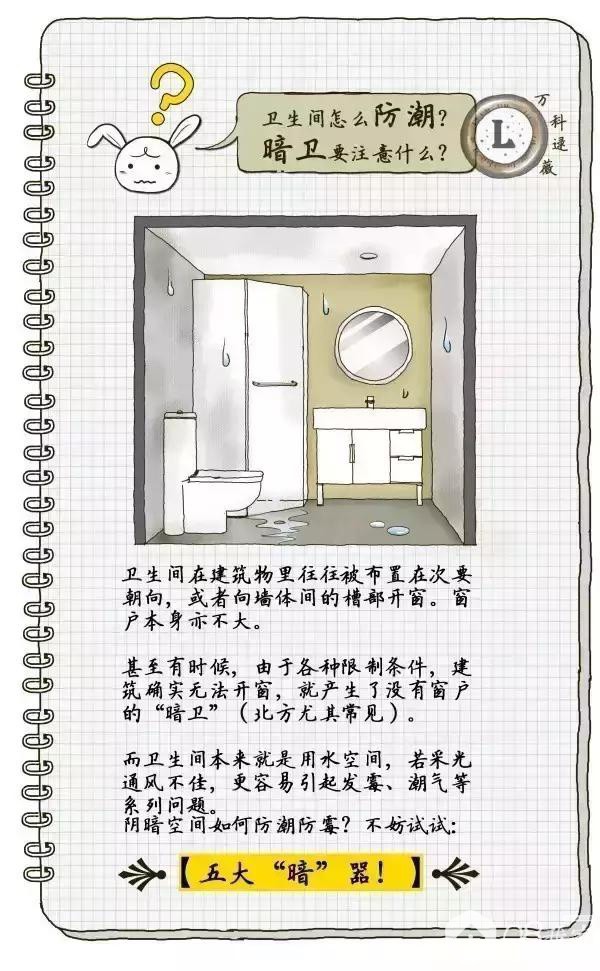 卫生间怎么防潮?
暗卫要注意什么?
L
万科逯薇
卫生间在建筑物里往往被布置在次要
朝向，或者向墙体间的槽部开窗。窗
户本身亦不大。
甚至有时候，由于各种限制条件，建
筑确实无法开窗，就产生了没有窗户
的“暗卫”（北方尤其常见）。
而卫生间本来就是用水空间，若采光
通风不佳，更容易引起发霉、潮气等
系列问题。
阴暗空间如何防潮防霉？不妨试试：
【五大“暗”器！】